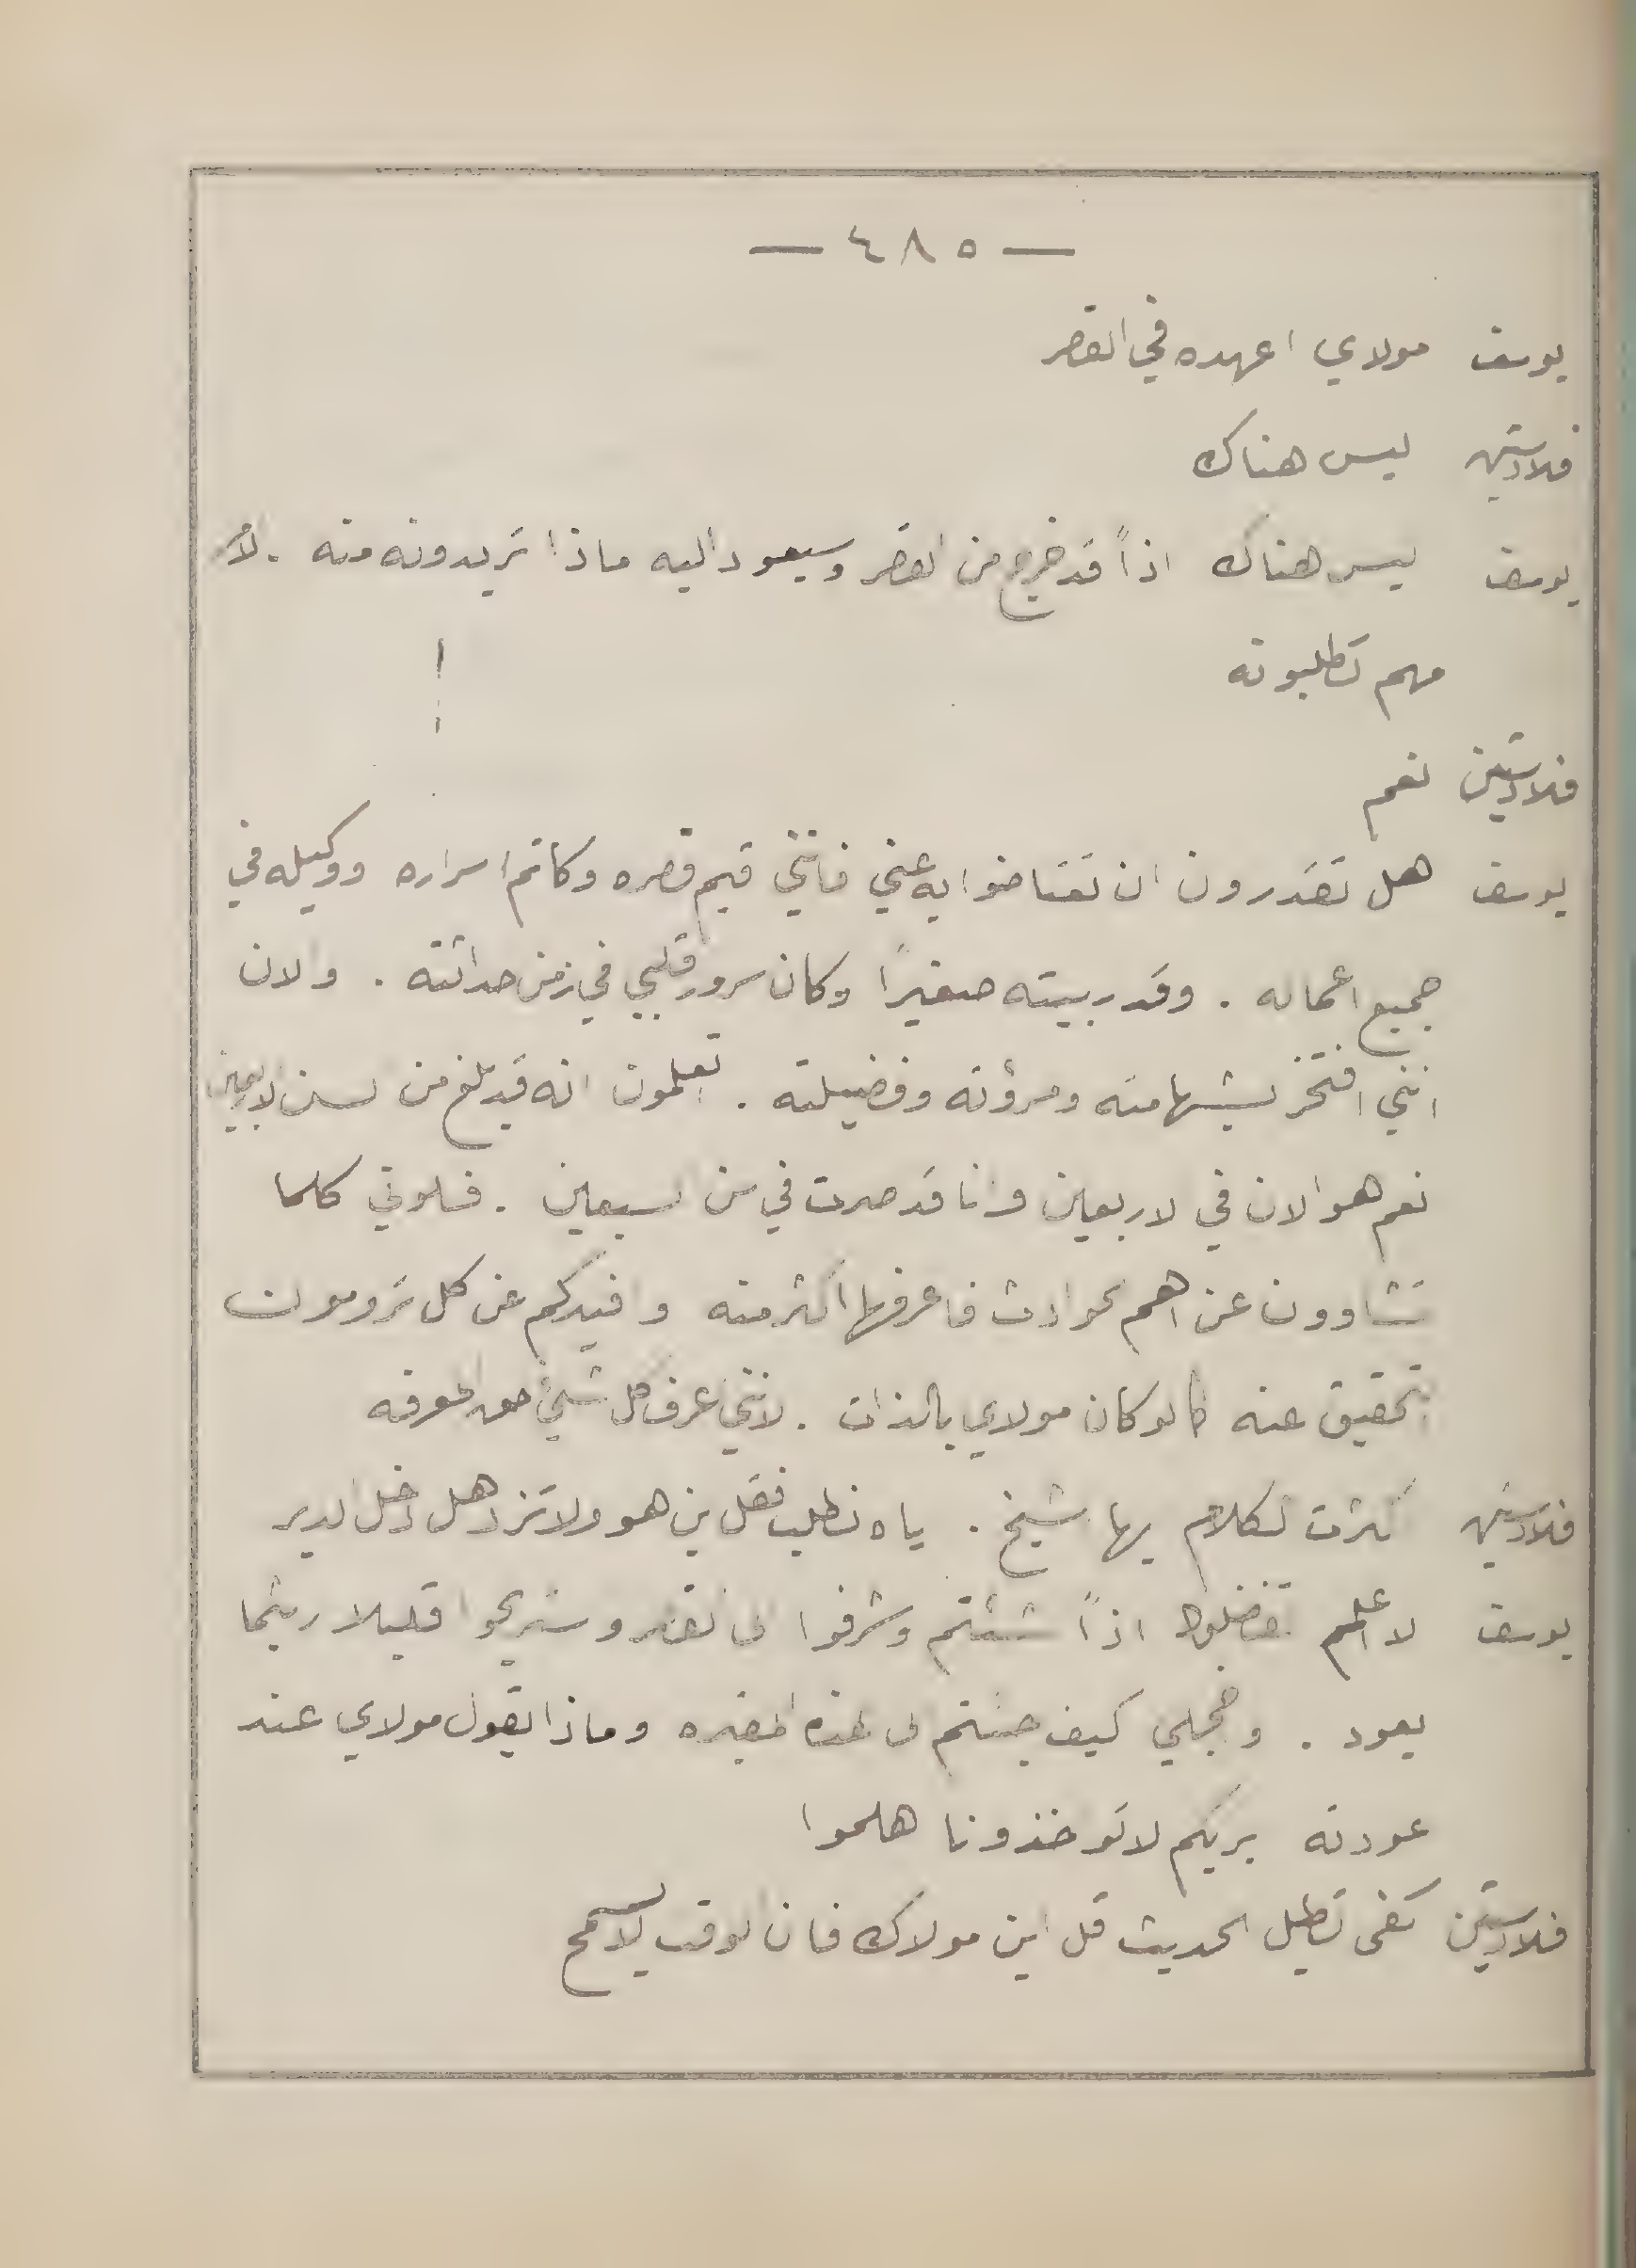 — ٤٨٥ —
يوسف مولاي اعهده في القصر
فلادستين ليس هناك
يوسف ليس هناك اذاً قد خرج من القصر وسيعود اليه ماذا تريدونه منه . لامر
مهم تطلبونه
فلادستين نعم
يوسف هل تقدرون ان تعتاضوا به عني فانني قيم قصره وكاتم اسراره ووكيله في
جميع اعماله . وقد ربيته صغيراً وكان سرور قلبي في زمن حداثته . والان
انني افتخر بشهامته ومرؤته وفضيلته . تعلمون انه قد بلغ من لسن لاربعين
نعم هو الان في لاربعين وانا قد صرت في سن لسبعين . فسلوني كلما
تشاوون عن اهم لحوادث فاعرفها اكثر منه وافيدكم عن كل ترومون
تحقيق عنه كما لو كان مولاي بالذات . لانني اعرف كل شيئ حق المعرفه
فلادستين كثرت لكلام يها لشيخ . ياه نطلب فقل ين هو ولا تزد هل دخل الدير
يوسف لا اعلم تفضلوا اذاً شئتم وشرفوا لى لقصر وستريحوا قليلا ريثما
يعود . وخجلي كيف جئتم لى هذه الحقيره وماذا يقول مولاي عند
عودته بربكم لا توخذونا هلموا
فلادستين كفى تطيل الحديث قل اين مولاك فان لوقت لا يسمح